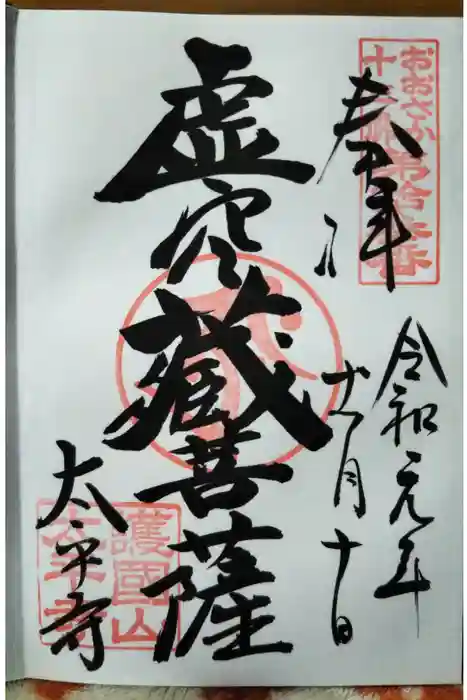 おおさか
十三佛
第拾三番
奉拝
令和元年
十一月十日
虚空蔵菩薩
護國山
太平寺
太平寺